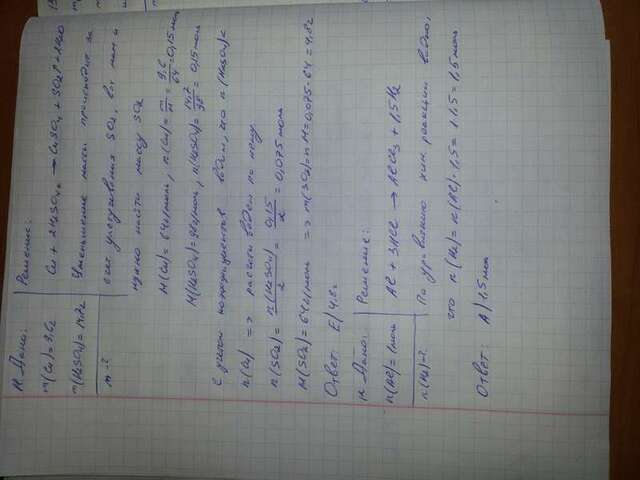 н. Дано:
m(Cu) = 9,6г
m(H2SO4) = 14,7г
m - ?
Решение:
Cu + 2H2SO4 → CuSO4 + SO2↑ + 2H2O
Уменьшение массы происходит за
счет улетучивания SO2, вот нам и
нужно найти массу SO2
M(Cu) = 64г/моль, n(Cu) = m/M = 9,6/64 = 0,15 моль
M(H2SO4) = 98г/моль, n(H2SO4) = 14,7/98 = 0,15 моль
С учетом коэффициентов видим, что n(H2SO4) <
n(Cu) => расчеты ведем по нему.
n(SO2) = n(H2SO4)/2 = 0,15/2 = 0,075 моль
M(SO2) = 64г/моль => m(SO2) = n·M = 0,075·64 = 4,8г
Ответ: E) 4,8г
н Дано:
n(Al) = 1моль
n(H2) - ?
Решение:
Al + 3HCl → AlCl3 + 1,5H2
По уравнению хим. реакции видно,
что n(H2) = n(Al)·1,5 = 1·1,5 = 1,5 моль
Ответ: A) 1,5 моль